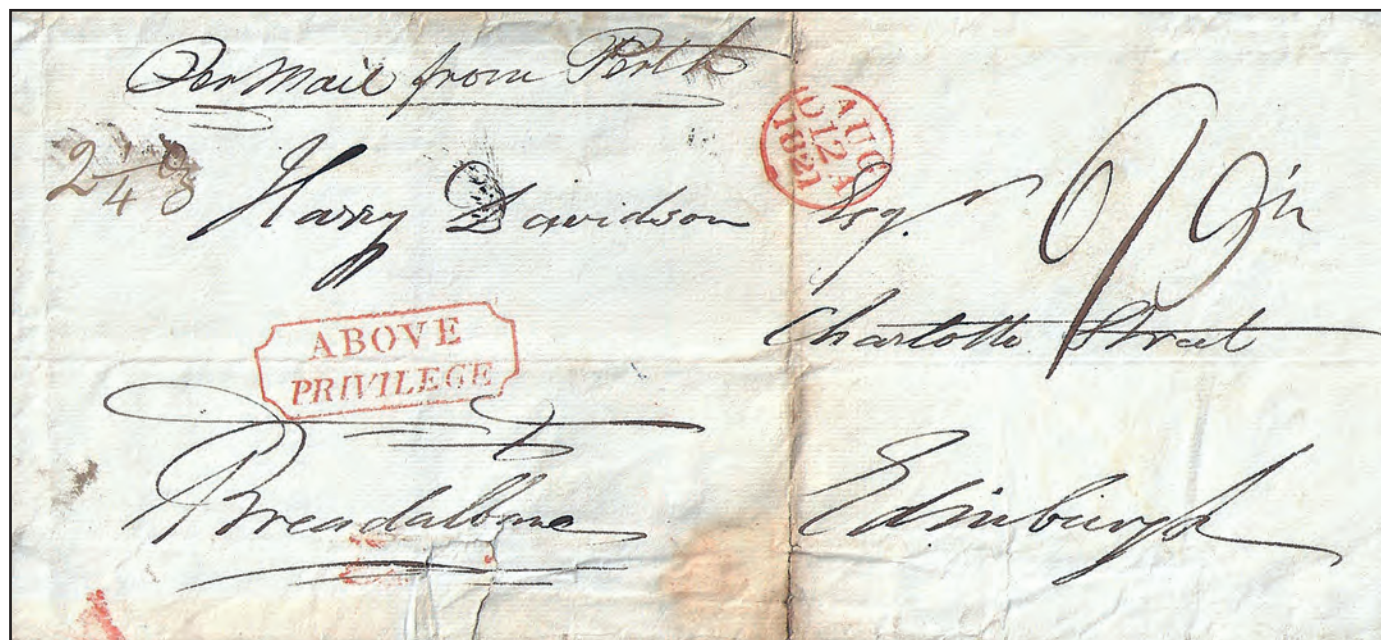 Per Mail from Perth
AUG
12 A
1821
2 1/4 oz
Harry Davidson Esq.
Charlotte Street
ABOVE
PRIVILEGE
Breadalbane
Edinburgh